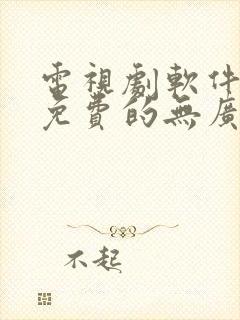 電視劇軟件
免費的無廣
不起